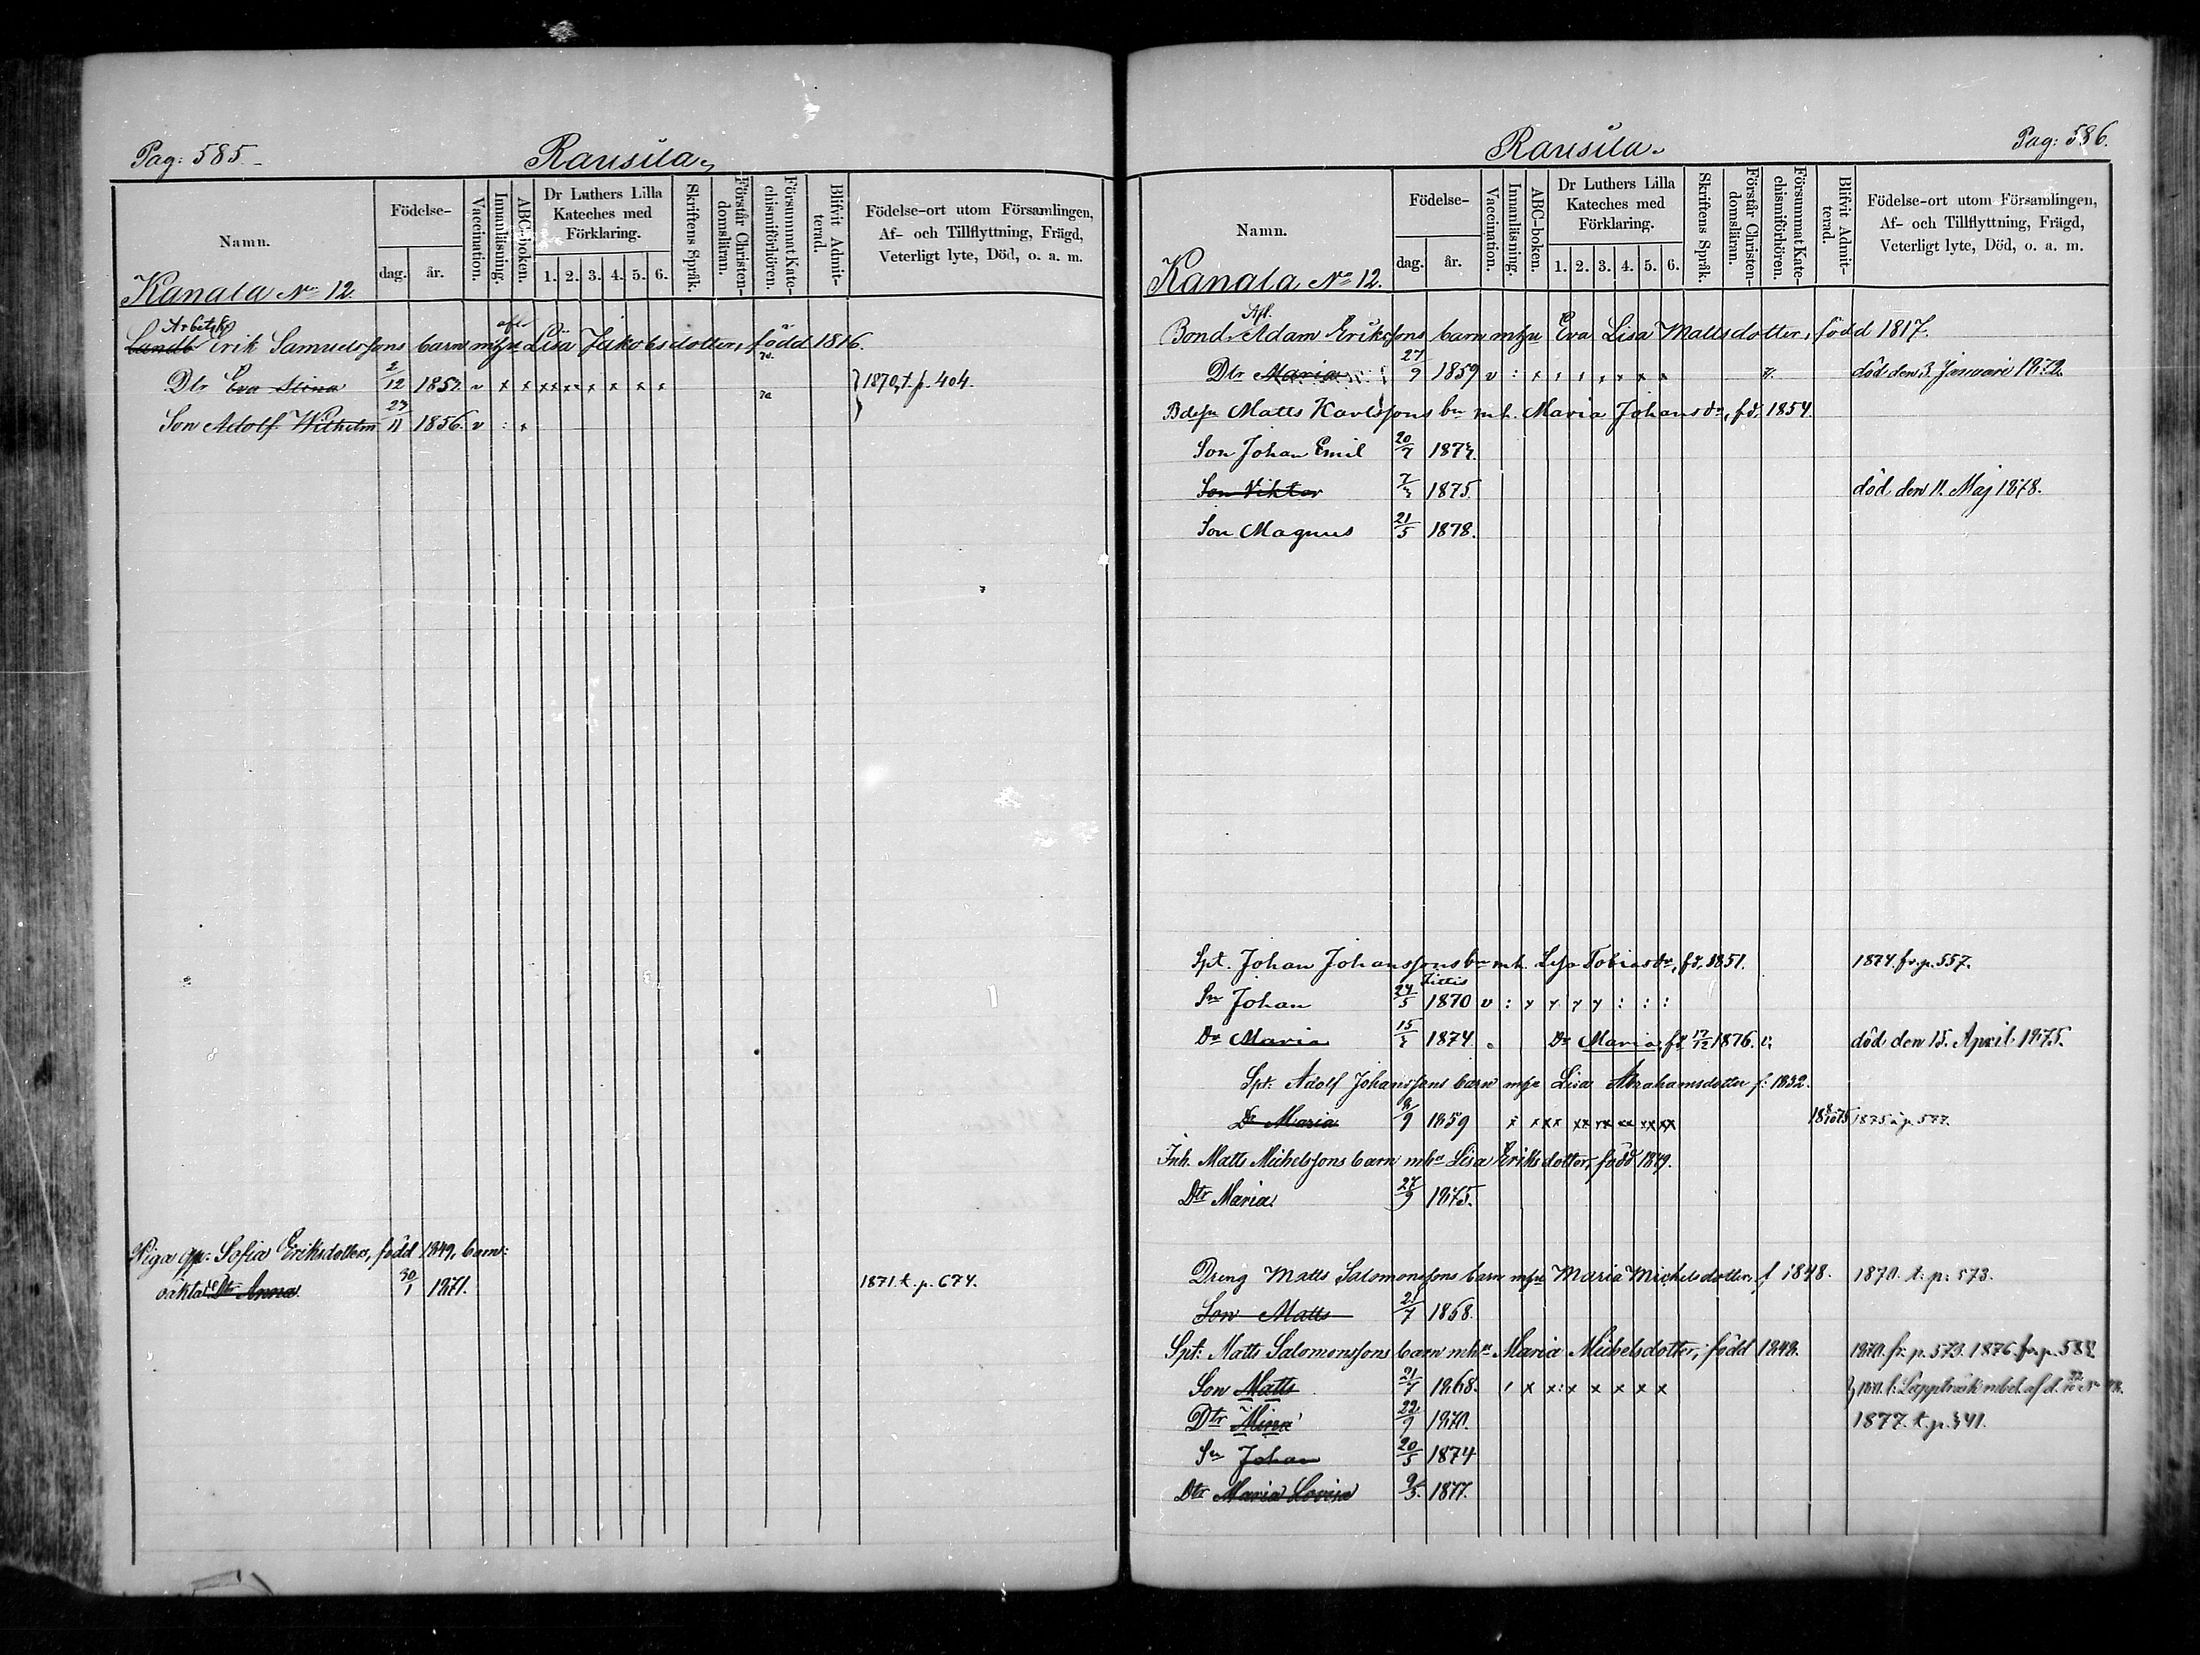 Pag: 585.
Ransila.
Namn.
Födelse-
dag. år.
Vaccination.
Innanläsning.
ABC-boken.
Dr Luthers Lilla
Kateches med
Förklaring.
1. 2. 3. 4. 5. 6.
Skriftens Språk.
Förstår Christen-
domsläran.
Försummat Kate-
chismiförhören.
Blifvit Admit-
terad.
Födelse-ort utom Församlingen,
Af- och Tillflyttning, Frägd,
Veterligt lyte, Död, o. a. m.
Kanala No 12.
Arbetsk
Landb Erik Samuelssons barn mhu Lisa Jakobsdotter, född 1816.
Dtr Eva Stina 2/12 1852. v x x xx xx x x x x } 1870, t. p. 404.
Son Adolf Wilhelm 27/11 1856. v : x
Piga Sofia Eriksdotters, född 1849, barn:
oäkta Dtr Anna. 30/1 1871. 1871. t. p. 674.
Pag: 586.
Ransila.
Namn.
Födelse-
dag. år.
Vaccination.
Innanläsning.
ABC-boken.
Dr Luthers Lilla
Kateches med
Förklaring.
1. 2. 3. 4. 5. 6.
Skriftens Språk.
Förstår Christen-
domsläran.
Försummat Kate-
chismiförhören.
Blifvit Admit-
terad.
Födelse-ort utom Församlingen,
Af- och Tillflyttning, Frägd,
Veterligt lyte, Död, o. a. m.
Kanala No 12.
Afl.
Bond. Adam Erikssons barn mhu Eva Lisa Mattsdotter, född 1817.
Dtr Maria 27/9 1859 v : x x x x x x död den 3 Januari 1872.
Bdesn Matts Karlssons bn m h. Maria Johansdr, fd. 1854.
Son Johan Emil 20/7 1874.
Son Viktor 1875. död den 11. Maj 1878.
Son Magnus 21/5 1878.
Spt. Johan Johanssons bn m h. Lisa Tobiasdr, fd. 1851. 1874. fr. p. 557.
Sn Johan 24/5 1870 v : y y y y : : :
Dr Maria 1874. Dr Maria, fd 17/12 1876. v. död den 15. April 1875.
Spt. Adolf Johanssons barn mhu Lisa Abrahamsdotter f. 1832.
Dr Maria 1859 x xxx xx xx xx xx xx 1875 p. 577.
Inh. Matts Michelssons barn mhu Lisa Eriksdotter, född 1849.
Dtr Maria 27/9 1875.
Dreng Matts Salomonssons barn mhu Maria Michelsdotter, f 1848. 1870. t. p. 573.
Son Matts 21/7 1868.
Spt: Matts Salomonssons barn mhu Maria Michelsdotter, född 1848. 1870. fr. p. 573. 1876. fr. p. 588
Son Matts 21/7 1868. x x : x x x x x
Dtr Mina 22/9 1870. 1877. t. p. 341.
Sn Johan 20/5 1874
Dtr Maria Lovisa 1877.